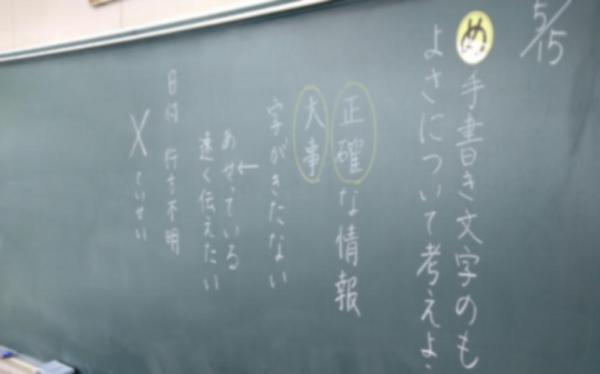 5/15
め 手書き文字のも
よさについて考えよ
正確な情報
大事
字がきたない
↓
あせっている
速く伝えたい
日付 行方不明
X ていせい